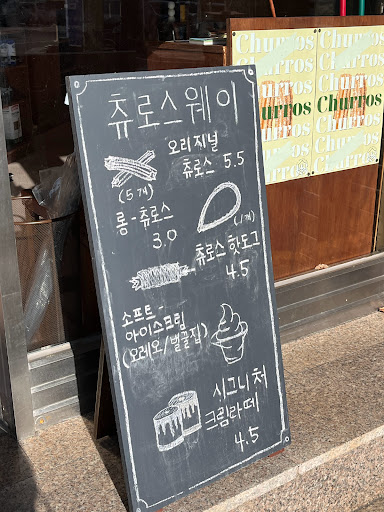 츄로스웨이
오리지널
츄로스 5.5
(5개)
롱-츄로스
3.0
(1개)
츄로스핫도그
4.5
소프트-
아이스크림
(오레오/벌꿀집)
시그니처
크림라떼
4.5
Churros
Churros
Churros
Churros
Churros
Churros
Churros
Churros